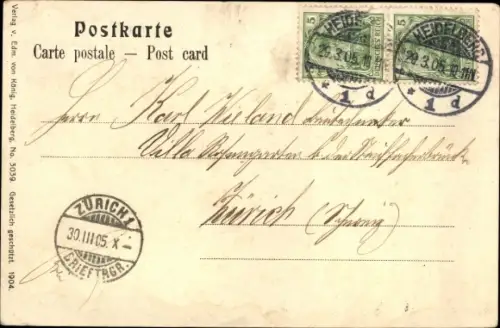 Postkarte
Carte postale — Post card
Verlag v. Edm. von König, Heidelberg, No. 3039. Gesetzlich geschützt. 1904.
5
5
HEIDELBERG
29.3.05.
* 1 d
HEIDELBERG
29.3.05.
* 1 d
Herrn Karl Wieland
Villa
Zürich (Schweiz)
ZÜRICH 1
30.III.05.X-
BRIEFTRGR.